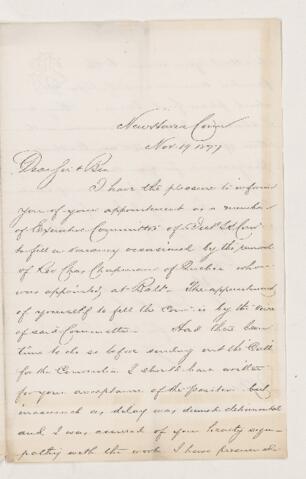 New Haven Conn
Nov 19 1877
Dear Sir & Bro
I have the pleasure to inform
you of your appointment as a member
of Executive Committee of
to fill a vacancy occasioned by the removal
of Rev Chas Chapman of Quebec who
was appointed, at Balt. The appointment
of yourself to fill the is by the voice
of said Committee. Had there been
time to do so before sending out the Call
for the Convention I should have written
for your acceptance of the position but
inasmuch as delay was deemed detrimental
and I was assured of your hearty sym-
pathy with the work I have presumed